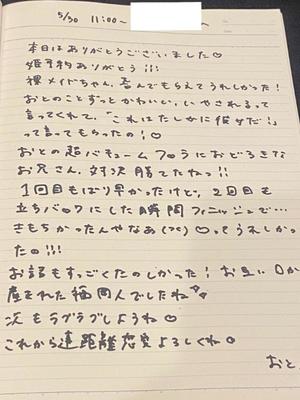 5/30 11:00~
本日はありがとうございました♡
姫予約ありがとう!!!
裸メイドちゃん、喜んでもらえてうれしかった!
おとのことずっとかわいい、いやされるって
言ってくれて、「これはたしかに彼女だ!」
って言ってもらったの!♡
おとの超バキュームフ○ラにおどろきな
お兄さん、対決 勝てたねっ!!
1回目もばり早かったけど、2回目も
立ちバックにした瞬間フィニッシュで…
きもちかったんやなあ ♡ってうれしかっ
たの!!!
お話もすっごくたのしかった! お互い口から
産まれた 同人でしたね
次もラブラブしようね♡
これから遠距離恋愛よろしくね♡
おと